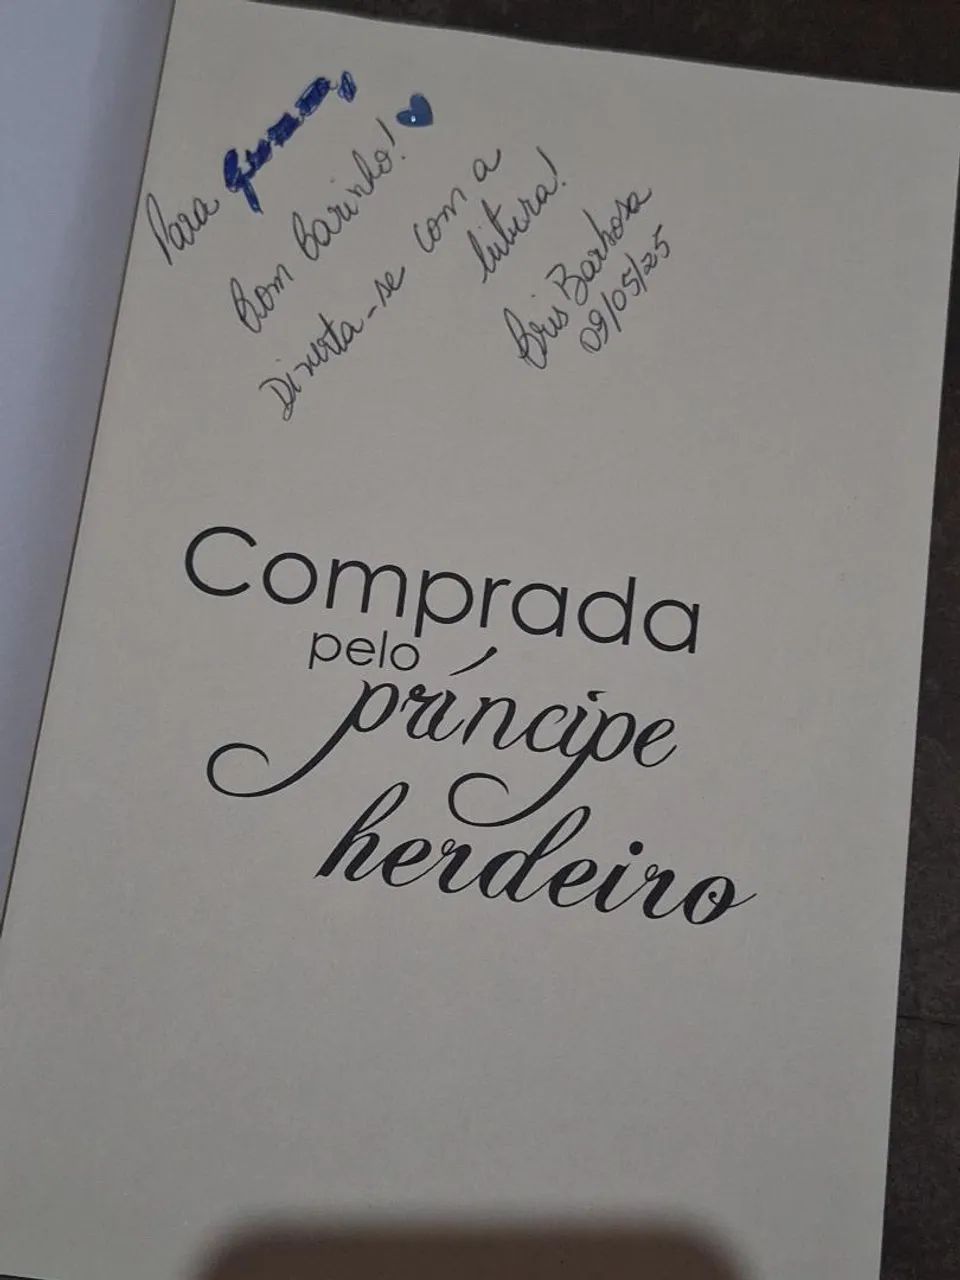 Para
Com Carinho!
Divirta-se com a
leitura!
Cris Barbosa
09/05/25
Comprada
pelo
príncipe
herdeiro